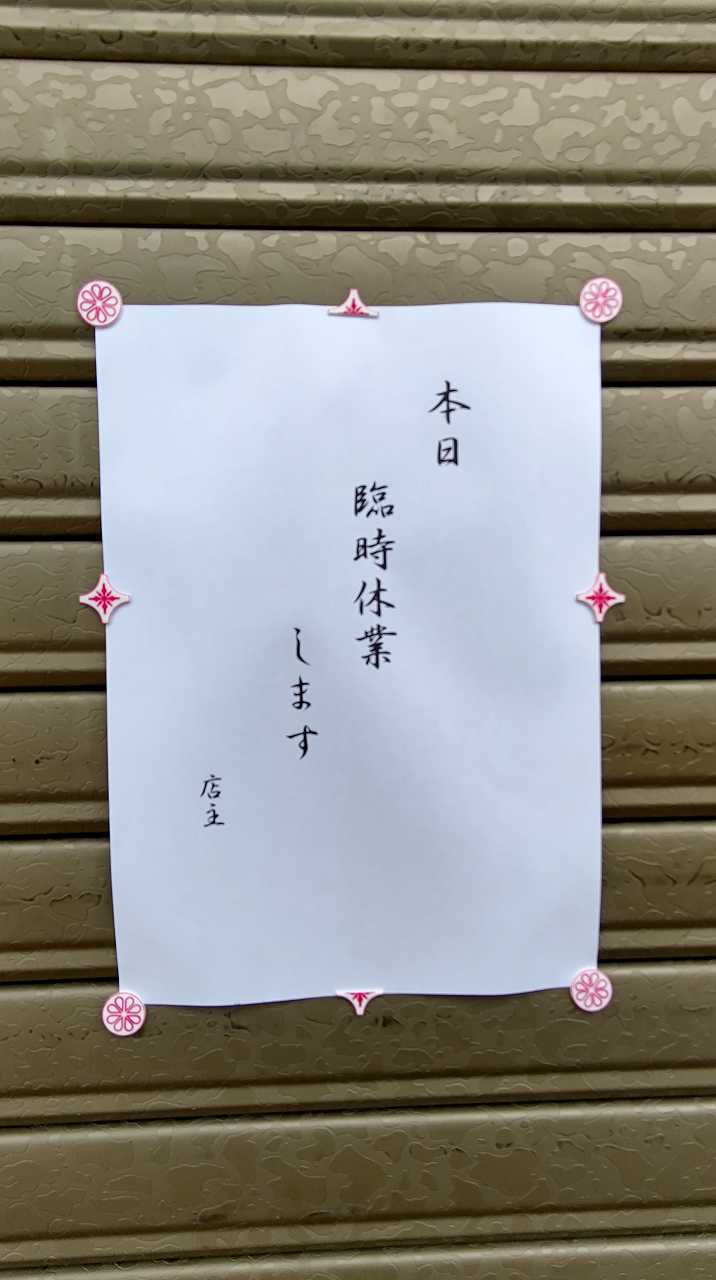 本日
臨時休業
します
店主